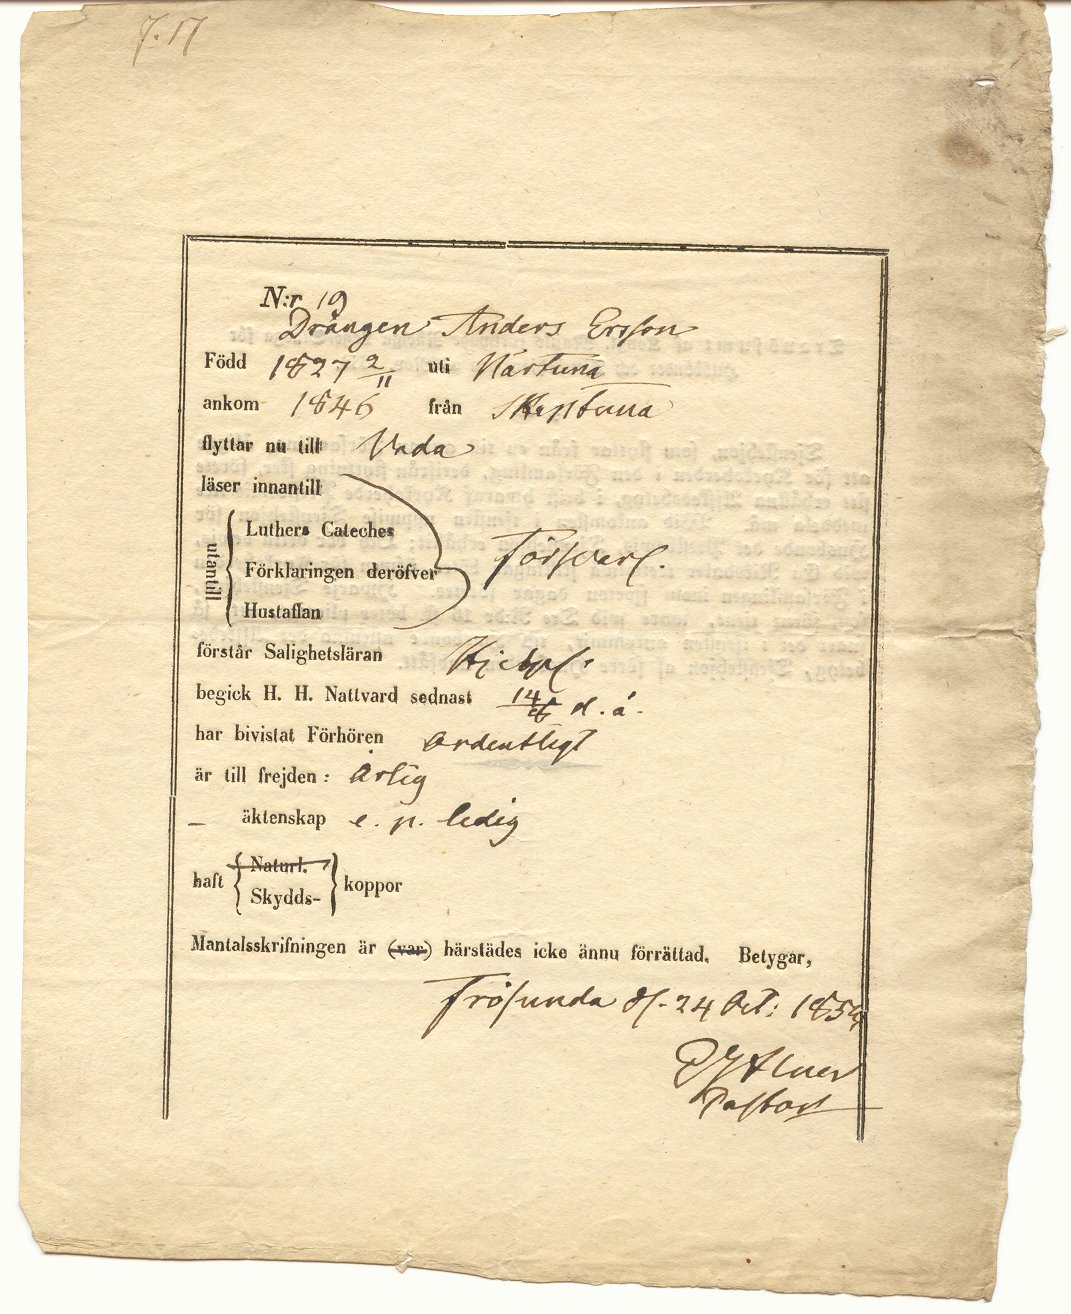 J. 17
N:r 19
Drängen Anders Ersson
Född 1827 2/11 uti Närtuna
ankom 1846 från Skeptuna
flyttar nu till Vada
läser innantill
utantill
Luthers Cateches
Förklaringen deröfver Försvarl.
Hustaflan
förstår Salighetsläran Hjelpl.
begick H. H. Nattvard sednast d. å.
har bivistat Förhören Ordentligt
är till frejden: Ärlig
– äktenskap e. p. ledig
haft Naturl. Skydds- koppor
Mantalsskrifningen är (var) härstädes icke ännu förrättad. Betygar,
Frösunda d. 24 Oct: 185
Pastor